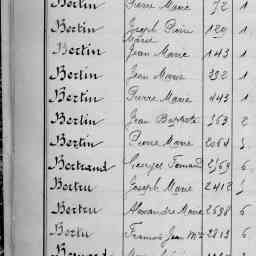 Bertin Pierre Marie 72 1
Bertin Joseph Pierre Marie 129 1
Bertin Jean Marie 143 1
Bertin Jean Marie 392 1
Bertin Pierre Marie 443 1
Bertin Jean Baptiste 563 2
Bertin Pierre Marie 2064
Bertrand Georges Fernand 6
Bertru Joseph Marie 2412
Bertru Alexandre Marie 2698 6
Bertu François Jean Mie 2813 6